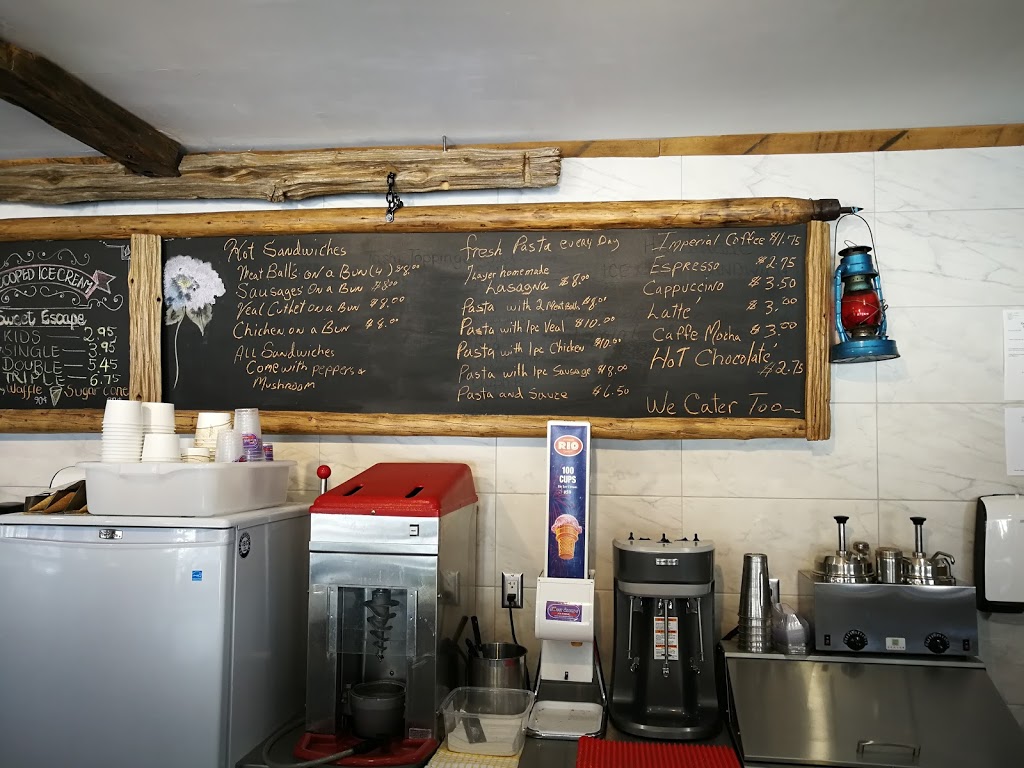 COOPED ICE CREAM
Sweet Escape
KIDS — 2.95
SINGLE — 3.95
DOUBLE — 5.45
TRIPLE — 6.75
Waffle Sugar cone
Hot Sandwiches
Meat Balls on a Bun (4) $8.00
Sausages on a Bun $8.00
Veal Cutlet on a Bun $8.00
Chicken on a Bun $8.00
All Sandwiches
Come with peppers &
Mushroom
Fresh Pasta every Day
7 layer homemade
Lasagna $8.00
Pasta with 2 Meat Balls $8.00
Pasta with 1pc Veal $10.00
Pasta with 1pc Chicken $10.00
Pasta with 1pc Sausage $8.00
Pasta and Sauce $6.50
Imperial Coffee $1.75
Espresso $2.75
Cappuccino $3.50
Latte' $3.00
Caffe Mocha $3.50
Hot Chocolate' $2.75
We Cater Too
RIO
100
CUPS